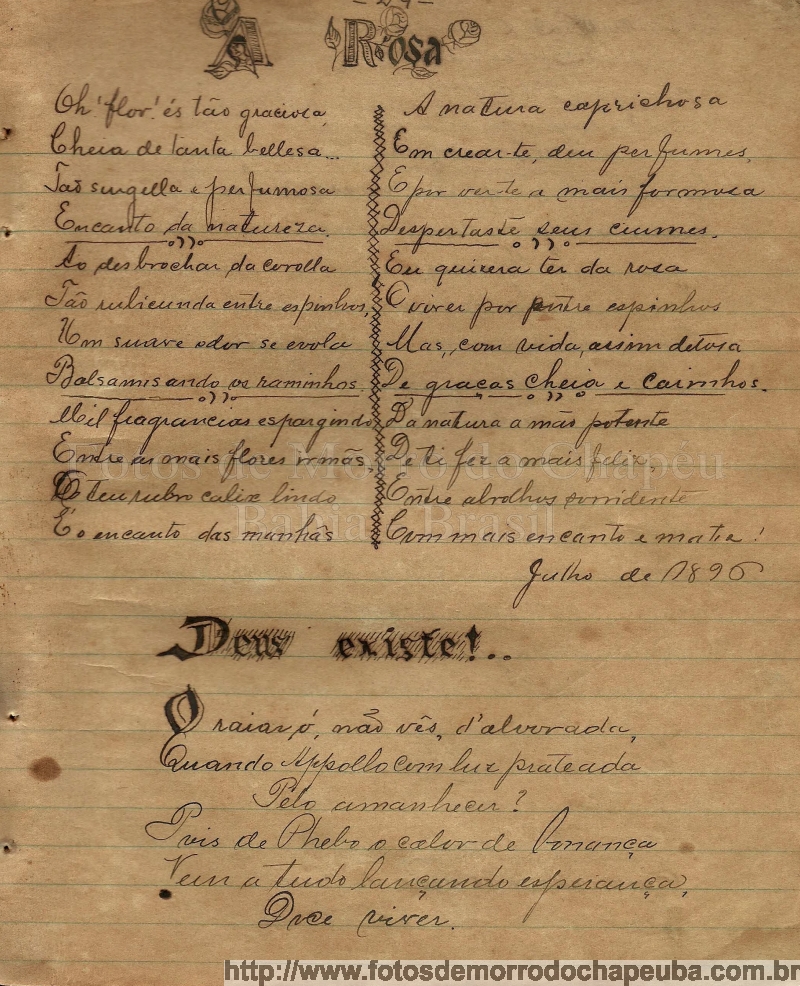 - 24 -
A Rosa
Oh! flor! és tão graciosa,
Cheia de tanta bellesa...
Tão singella e perfumosa
Encanto da natureza.
Ao desbrochar da corolla
Tão rubicunda entre espinhos,
Um suave odor se evola
Balsamisando os raminhos.
Mil fragrancias espargindo
Entre as mais flores irmãs,
O teu rubro calix lindo
É o encanto das manhãs
A natura caprichosa
Em crear-te, deu perfumes,
E por ver-te a mais formosa
Despertaste seus ciumes.
Eu quizera ter da rosa
O viver por entre espinhos
Mas, com vida, assim ditosa
De graças cheia e carinhos.
Da natura a mão potente
De ti fez a mais feliz,
Entre abrolhos sorridente
Com mais encanto e matiz!
Julho de 1896
Deus existe!..
O raiar, ó, não vês, d'alvorada,
Quando Appollo com luz prateada
Pelo amanhecer?
Pois de Phebo o calor de bonança
Vem a tudo lançando esperança,
Doce viver.
Fotos de Morro do Chapéu
Bahia - Brasil
http://www.fotosdemorrodochapeuba.com.br